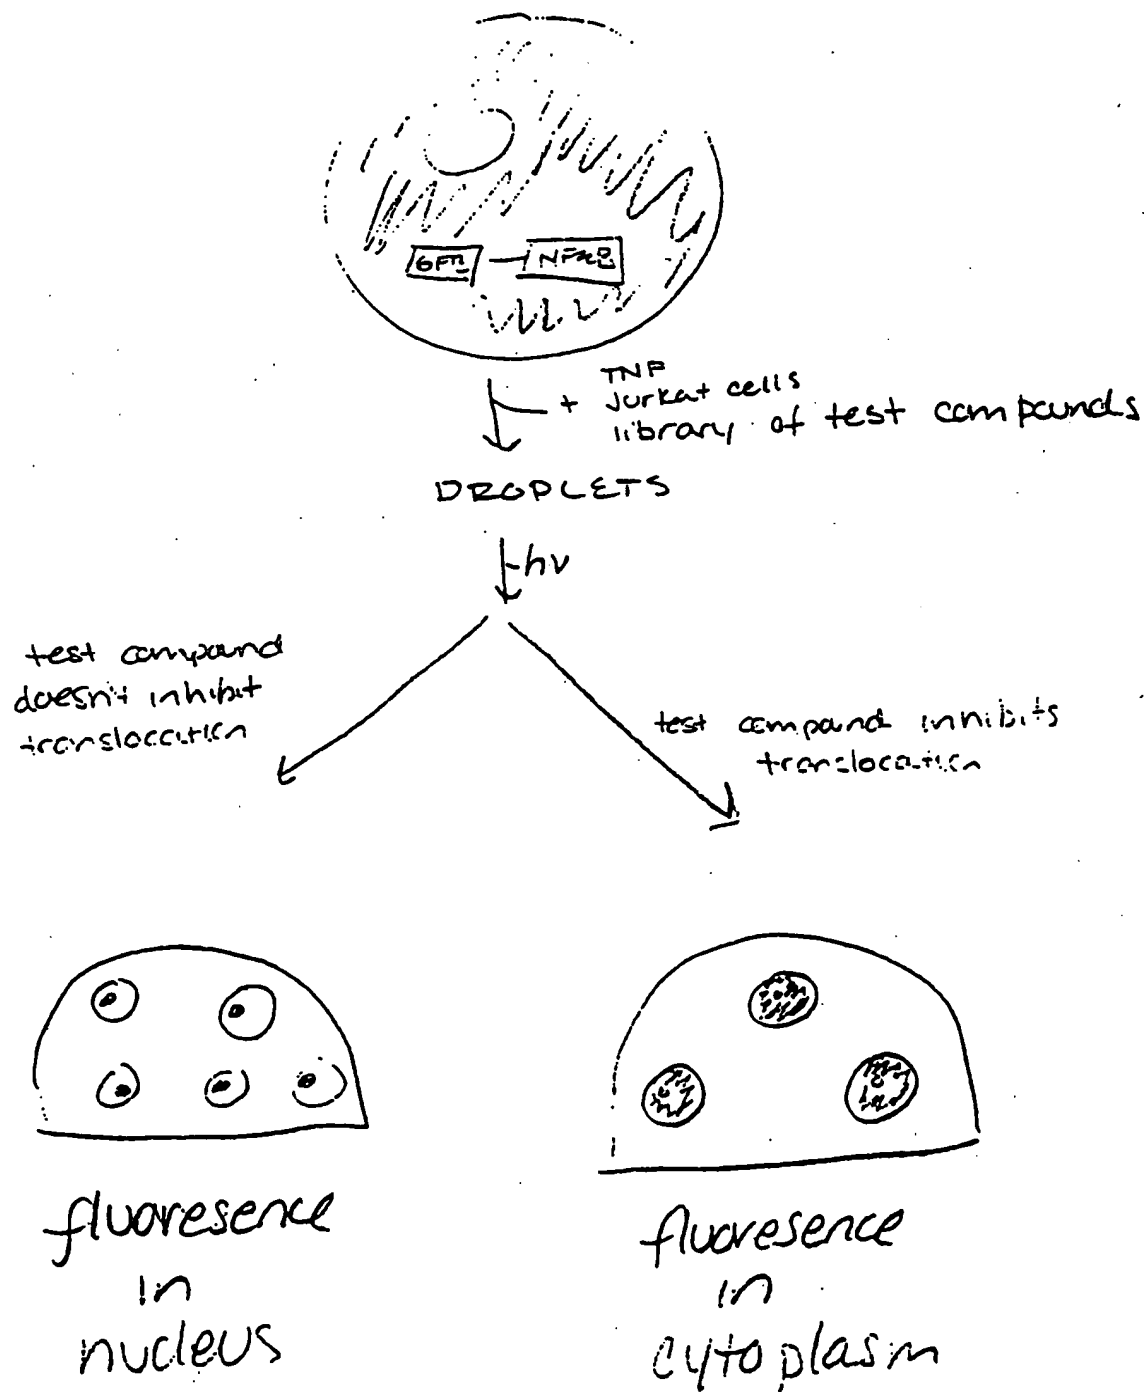 GFP
NFKB
+ TNF
Jurkat cells
library of test compounds
DROPLETS
hν
test compound
doesn't inhibit
translocation
test compound inhibits
translocation
fluoresence
in
nucleus
fluoresence
in
cytoplasm